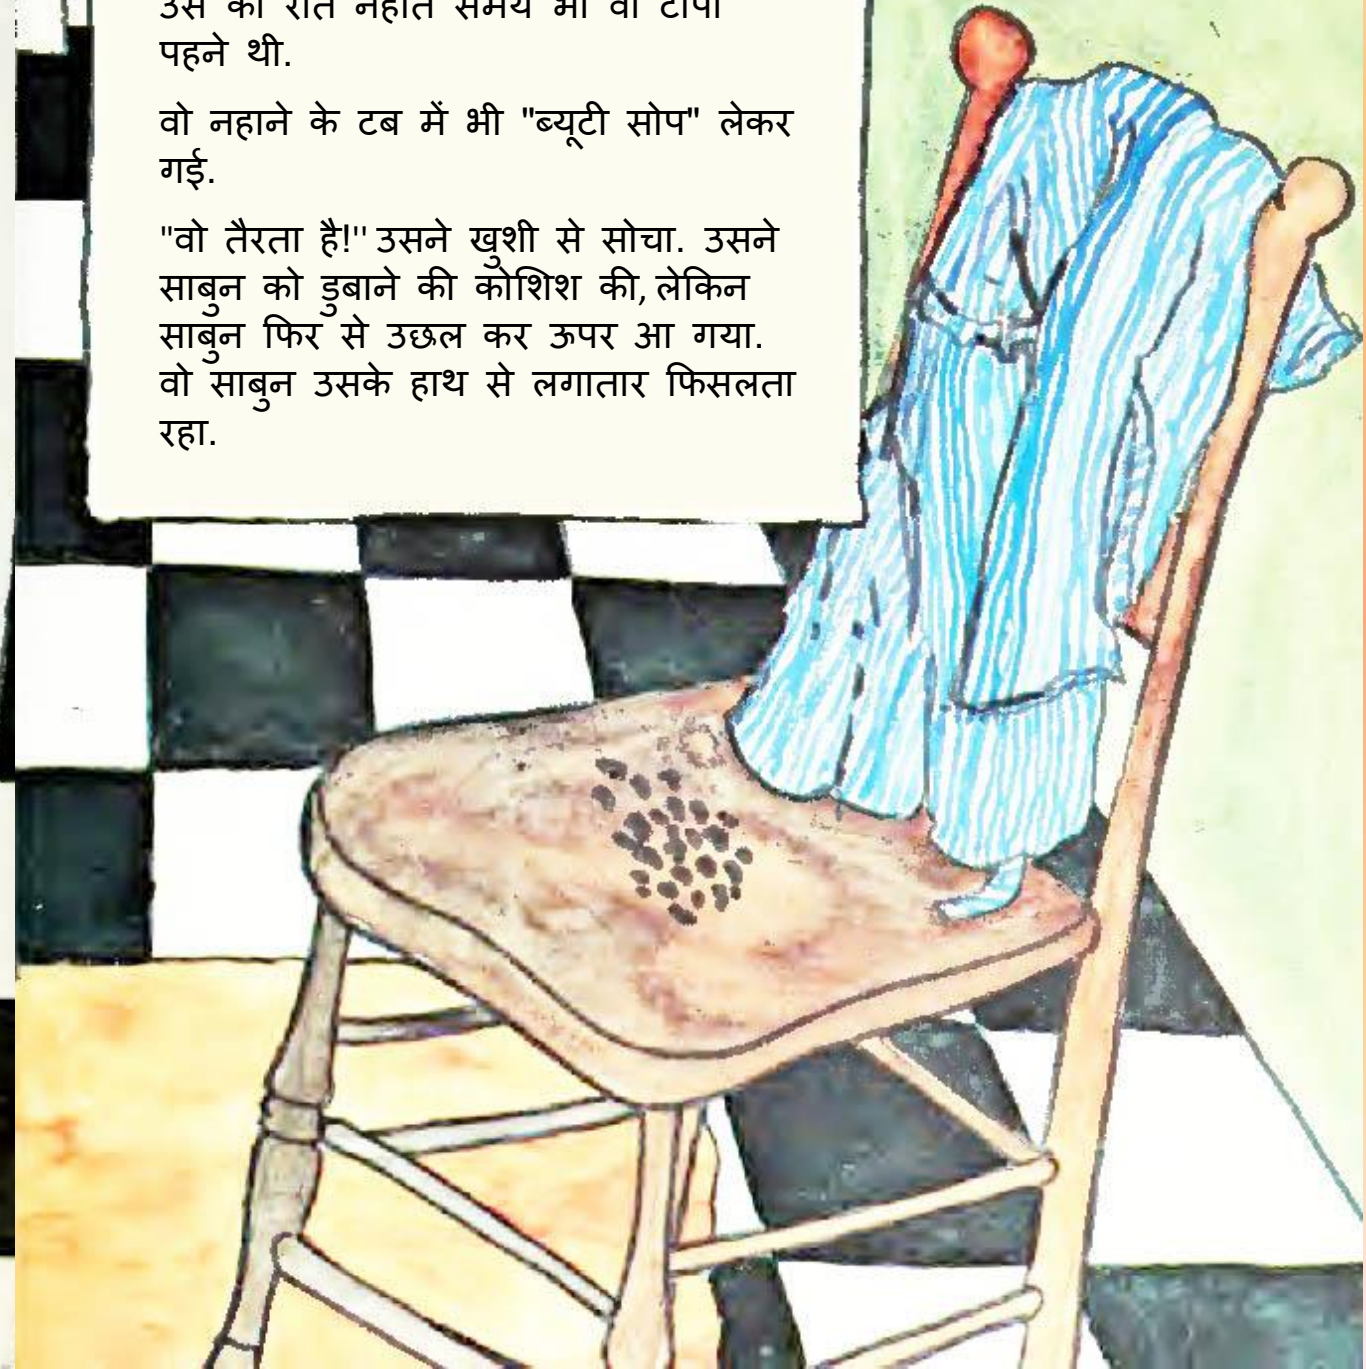 रात नहाते समय भी वो टोपी
पहने थी.
वो नहाने के टब में भी "ब्यूटी सोप" लेकर
गई.
"वो तैरता है!'' उसने खुशी से सोचा. उसने
साबुन को डुबाने की कोशिश की, लेकिन
साबुन फिर से उछल कर ऊपर आ गया.
वो साबुन उसके हाथ से लगातार फिसलता
रहा.